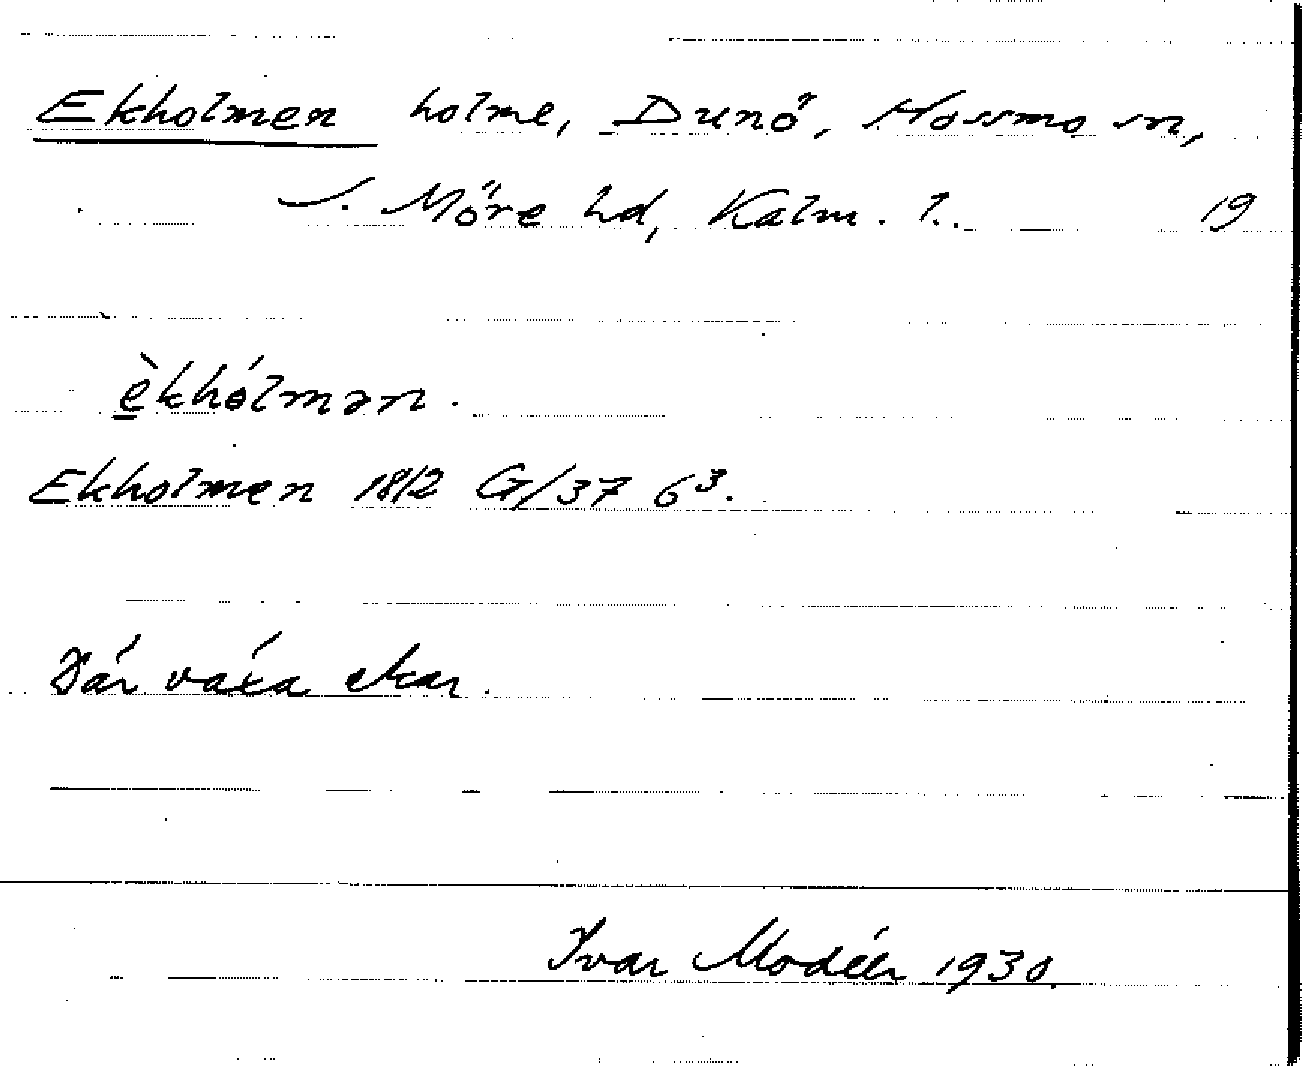 Ekholmen holme, Dunö, Hossmo sn,
S. Möre hd, Kalm. l. 19
èkhólmən.
Ekholmen 1812 G/37 6³.
Där växa ekar.
Ivar Modéer 1930.